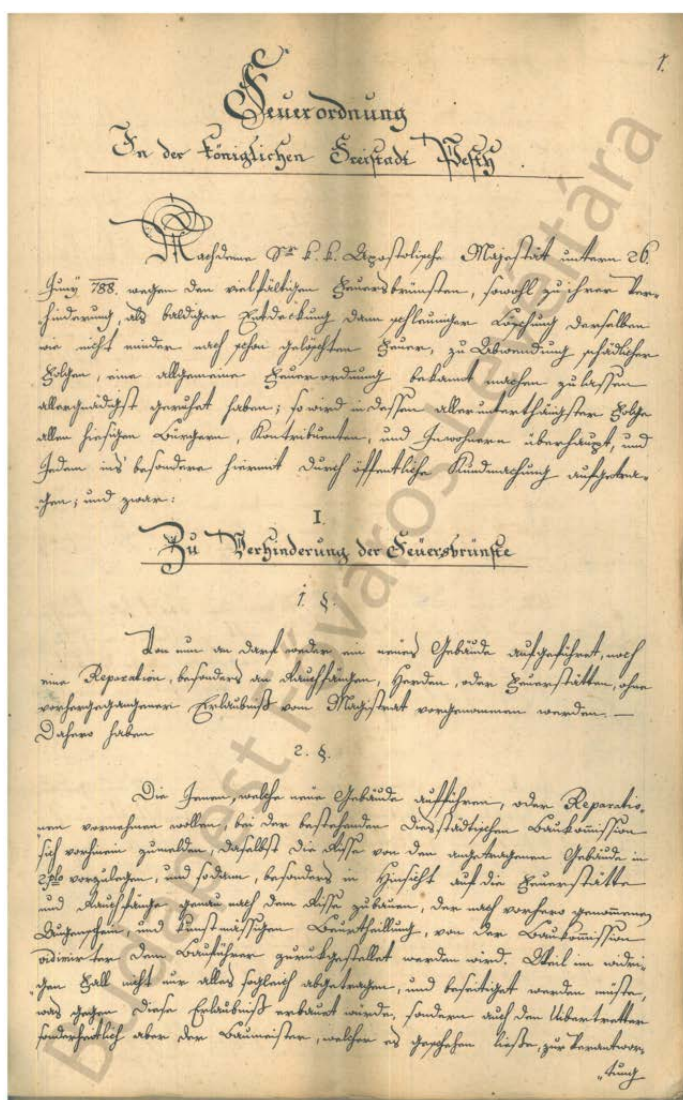 1.
Feuerordnung
In der königlichen Freistadt Pesth
Nachdeme Sr k. k. Apostolische Majestät unterm 26.
Juny 788. wegen den vielfältigen Feuersbrünsten, sowohl zu ihrer Ver-
hinderung, als baldiger Entdeckung dann schleuniger Löschung derselben
wie nicht minder nach schon gelöschten Feuer, zu Abwendung schädlicher
Folgen, eine allgemeine Feuerordnung bekannt machen zu lassen
allergnädigst geruhet haben; so wird in dessen allerunterthänigster Folge
allen hiesigen Bürgern, Kontribuenten, und Inwohnern überhaupt, und
Jedem ins besondere hiermit durch öffentliche Kundmachung aufgetra-
gen; und zwar:
I.
Zu Verhinderung der Feuersbrünste
1. §.
Von nun an darf weder ein neues Gebäude aufgeführet, noch
eine Reparation, besonders an Rauchfängen, Herden, oder Feuerstätten, ohne
vorhergegangener Erlaubniß vom Magistrat vorgenommen werden. —
Dahero haben
2. §.
Die Jenen, welche neue Gebäude aufführen, oder Reparatio-
nen vornehmen wollen, bei der bestehenden diesstädtischen Baukomission
sich vorhinein zumelden, daselbst die Risse von den angetragenen Gebäude in
2plo vorzulegen, und sodann, besonders in Hinsicht auf die Feuerstätte
und Rauchfänge genau nach dem Risse zubauen, der nach vorhero genommenen
Augenschein, und kunstmässigen Beurtheillung, von der Baukomission
vidimirter dem Bauführer zurückgestellet werden wird. Weil im widri-
gen Fall nicht nur alles sogleich abgetragen, und beseitiget werden müste,
was gegen diese Erlaubniß erbauet würde, sondern auch den Uibertretter
sonderheitlich aber der Baumeister, welcher es geschehen ließe, zur Verantwor-
tung
Budapest Főváros Levéltára